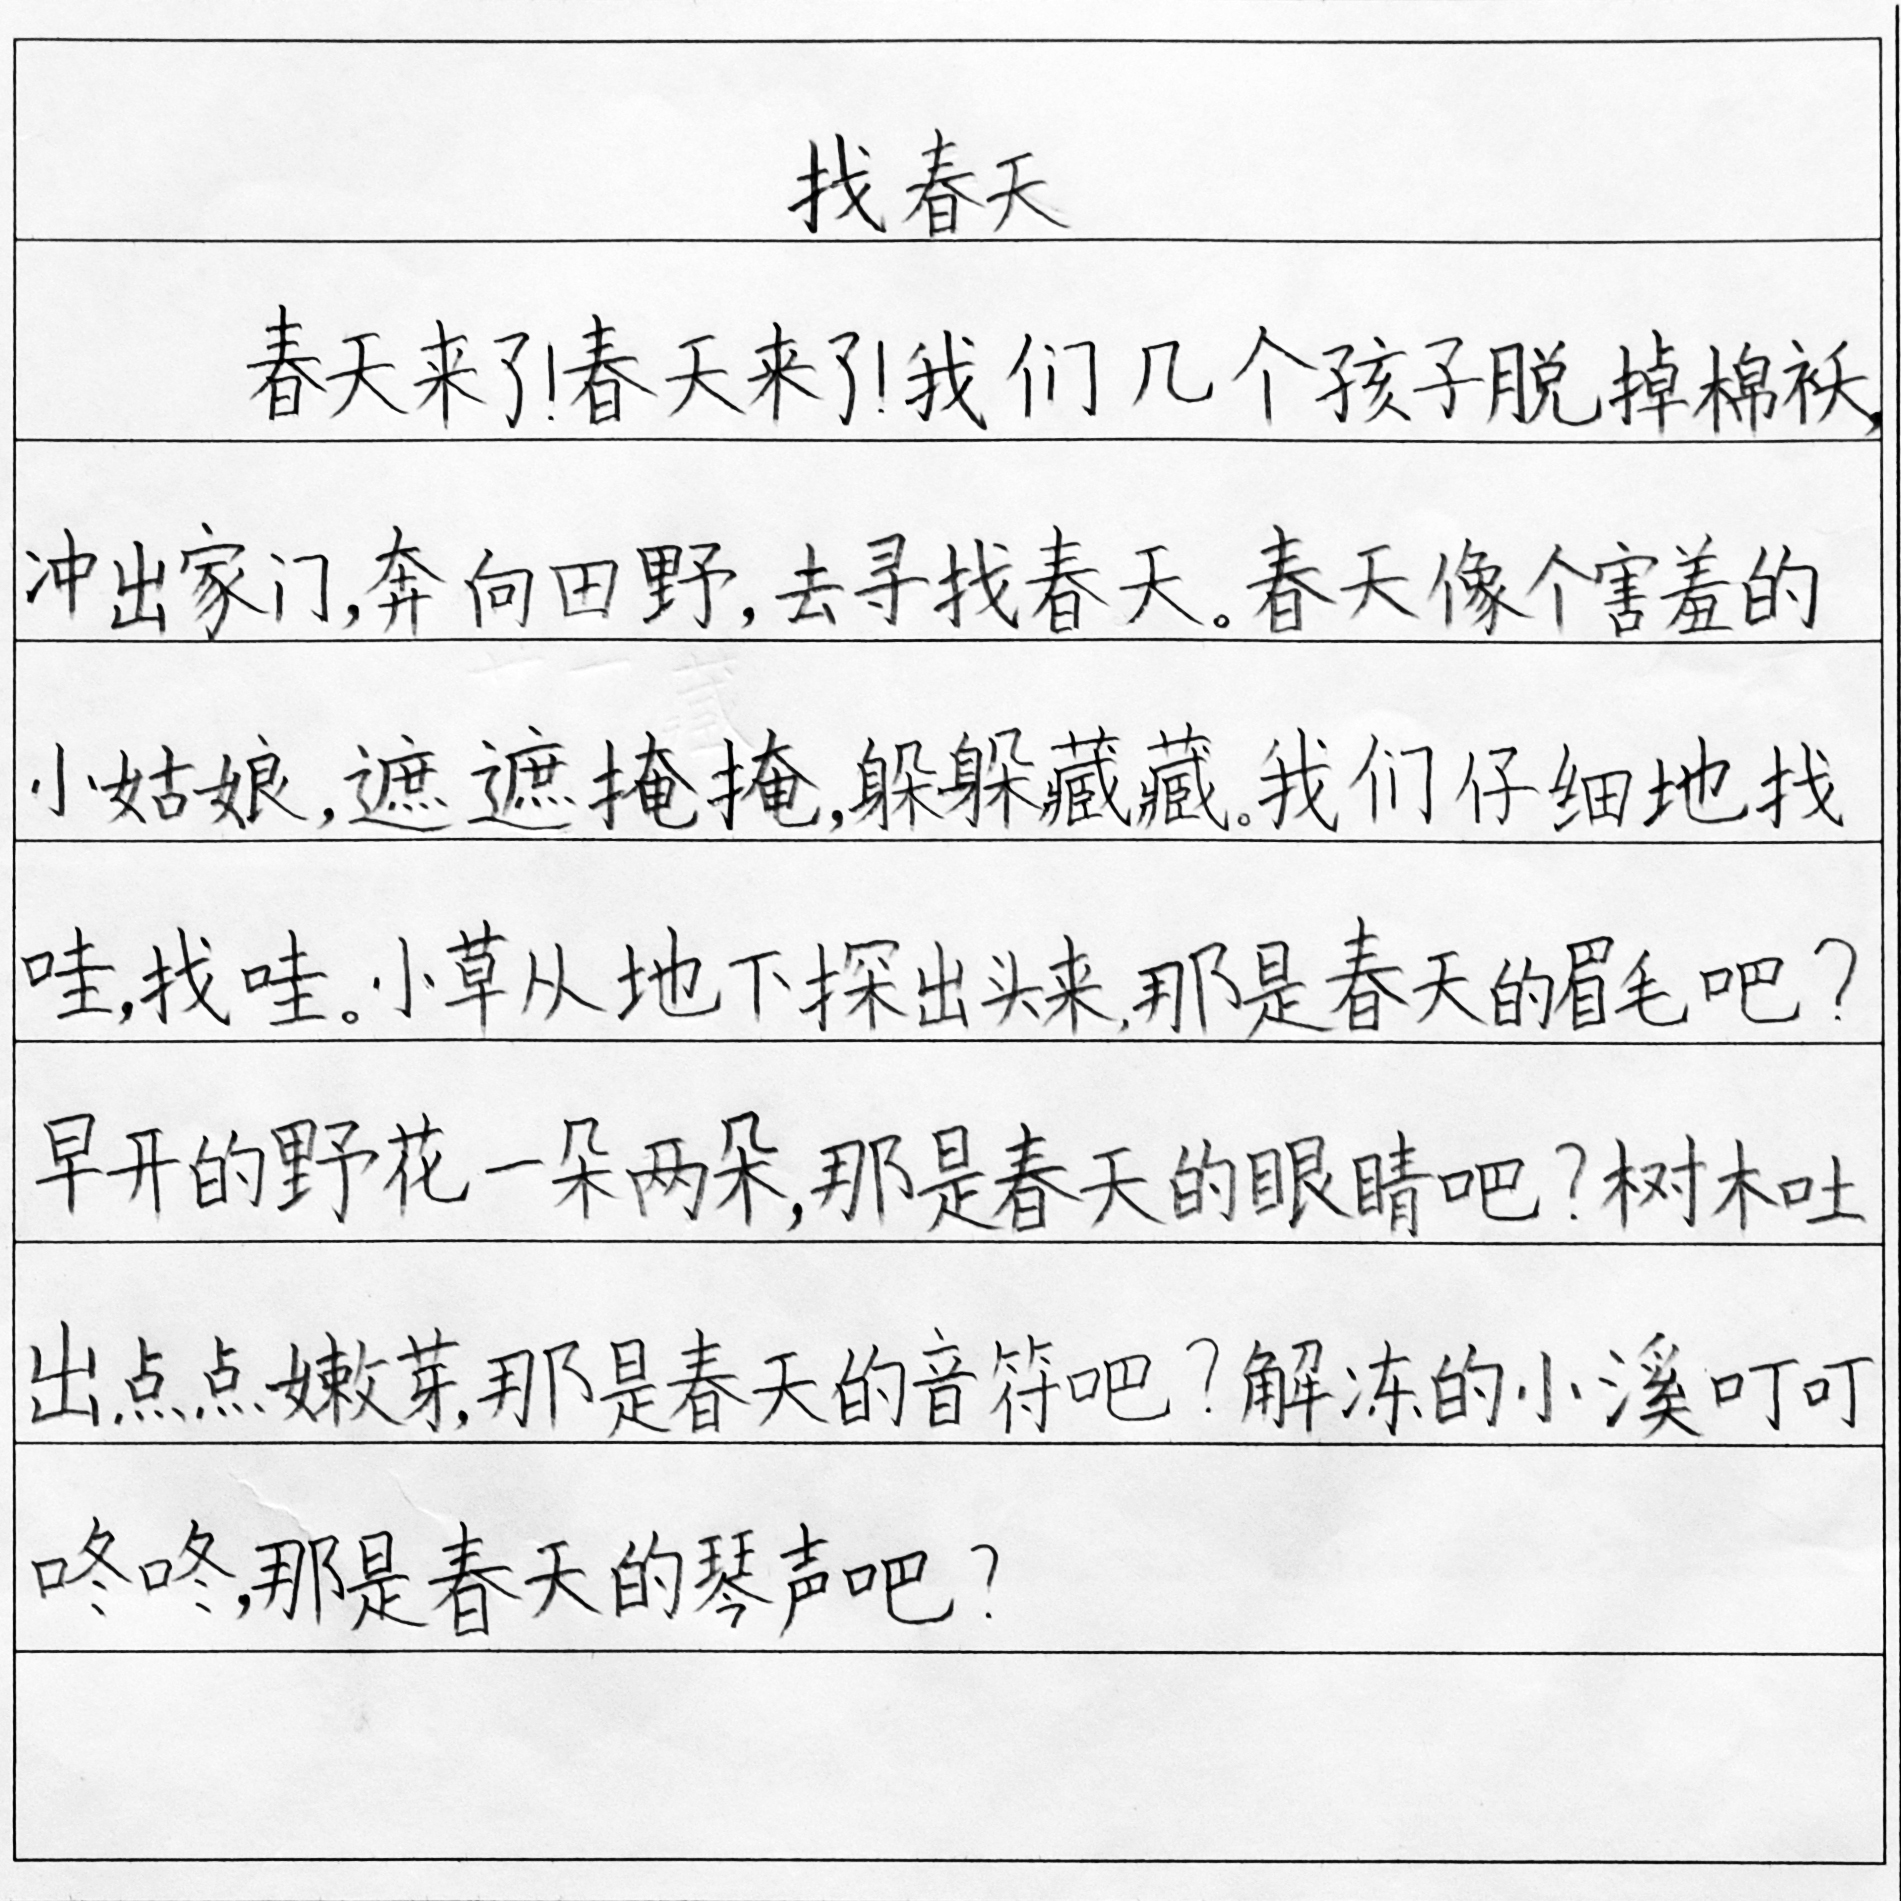 找春天
春天来了!春天来了!我们几个孩子脱掉棉袄,
冲出家门,奔向田野,去寻找春天。春天像个害羞的
小姑娘,遮遮掩掩,躲躲藏藏。我们仔细地找
哇,找哇。小草从地下探出头来,那是春天的眉毛吧?
早开的野花一朵两朵,那是春天的眼睛吧?树木吐
出点点嫩芽,那是春天的音符吧?解冻的小溪叮叮
咚咚,那是春天的琴声吧?